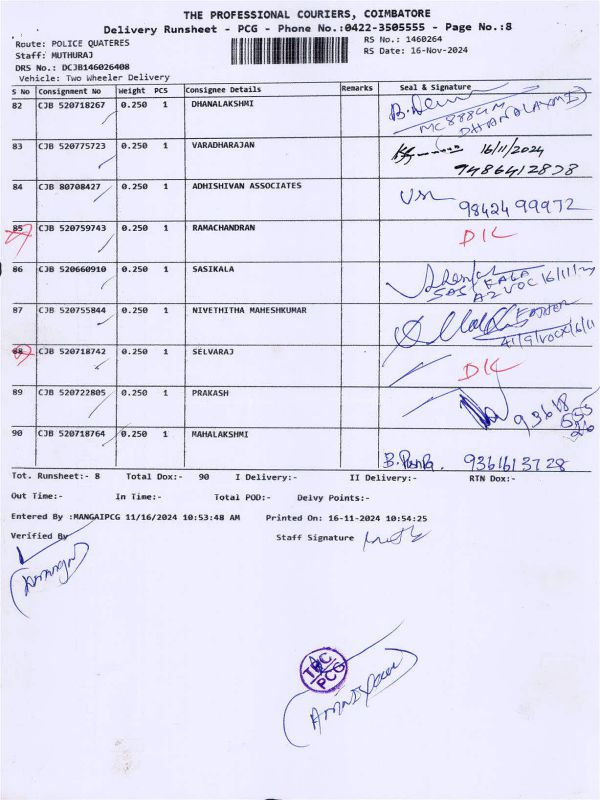 THE PROFESSIONAL COURIERS, COIMBATORE
Delivery Runsheet - PCG - Phone No.:0422-3505555 - Page No.:8
Route: POLICE QUATERES RS No.: 1460264
Staff: MUTHURAJ RS Date: 16-Nov-2024
DRS No.: DCJB146026408
Vehicle: Two Wheeler Delivery
S No Consignment No Weight PCS Consignee Details Remarks Seal & Signature
82 CJB 520718267 0.250 1 DHANALAKSHMI
83 CJB 520775723 0.250 1 VARADHARAJAN 16/11/2024
9486412838
84 CJB 80708427 0.250 1 ADHISHIVAN ASSOCIATES
98424 99972
85 CJB 520759743 0.250 1 RAMACHANDRAN
86 CJB 520660910 0.250 1 SASIKALA
SASIKALA
87 CJB 520755844 0.250 1 NIVETHITHA MAHESHKUMAR
FATHER
88 CJB 520718742 0.250 1 SELVARAJ
89 CJB 520722805 0.250 1 PRAKASH
90 CJB 520718764 0.250 1 MAHALAKSHMI
9361613728
Tot. Runsheet:- 8 Total Dox:- 90 I Delivery:- II Delivery:- RTN Dox:-
Out Time:- In Time:- Total POD:- Delvy Points:-
Entered By :MANGAIPCG 11/16/2024 10:53:48 AM Printed On: 16-11-2024 10:54:25
Verified By Staff Signature
PCG